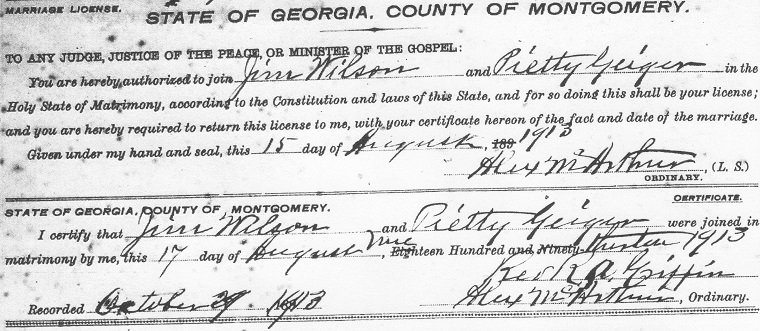 MARRIAGE LICENSE.
STATE OF GEORGIA, COUNTY OF MONTGOMERY.
TO ANY JUDGE, JUSTICE OF THE PEACE, OR MINISTER OF THE GOSPEL:
You are hereby authorized to join Jim Wilson and Pietty Geiger in the
Holy State of Matrimony, according to the Constitution and laws of this State, and for so doing this shall be your license;
and you are hereby required to return this license to me, with your certificate hereon of the fact and date of the marriage.
Given under my hand and seal, this 15 day of August, 189 1913
Alex McArthur, (L. S.)
ORDINARY.
CERTIFICATE.
STATE OF GEORGIA, COUNTY OF MONTGOMERY.
I certify that Jim Wilson and Pietty Geiger were joined in
matrimony by me, this 17 day of August Nine, Eighteen Hundred and Ninety- 1913
A. Griffin
Recorded October 29 1913 Alex McArthur, Ordinary.